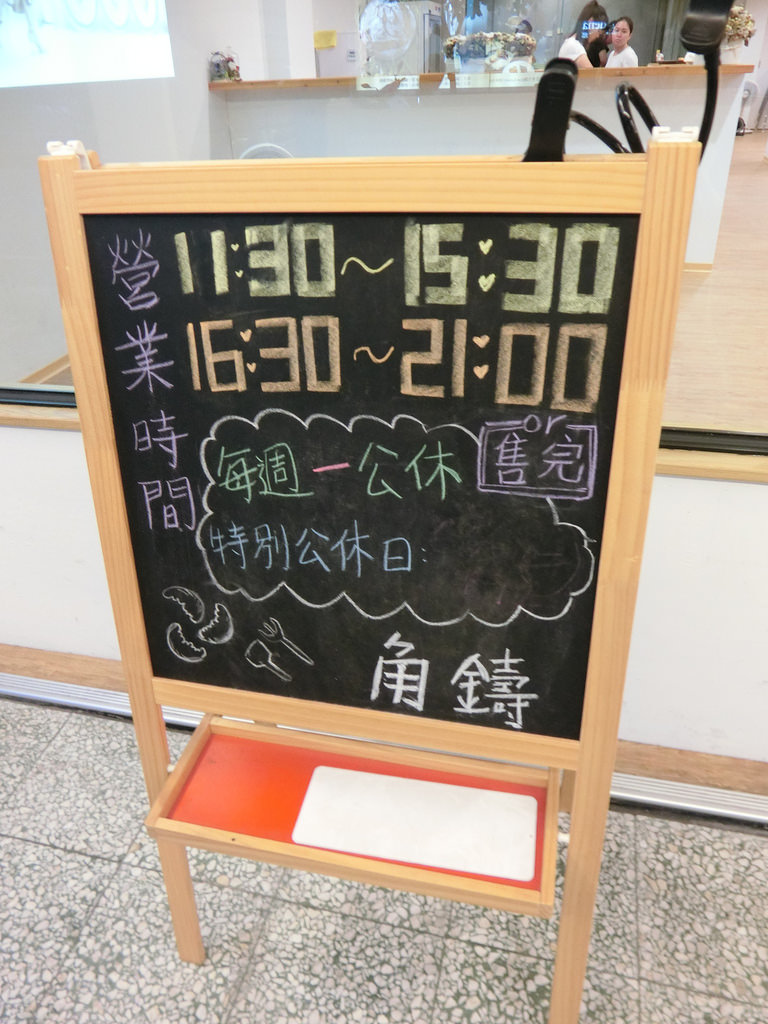 營業時間
11:30~15:30
16:30~21:00
or
售完
每週一公休
特別公休日:
角鑄